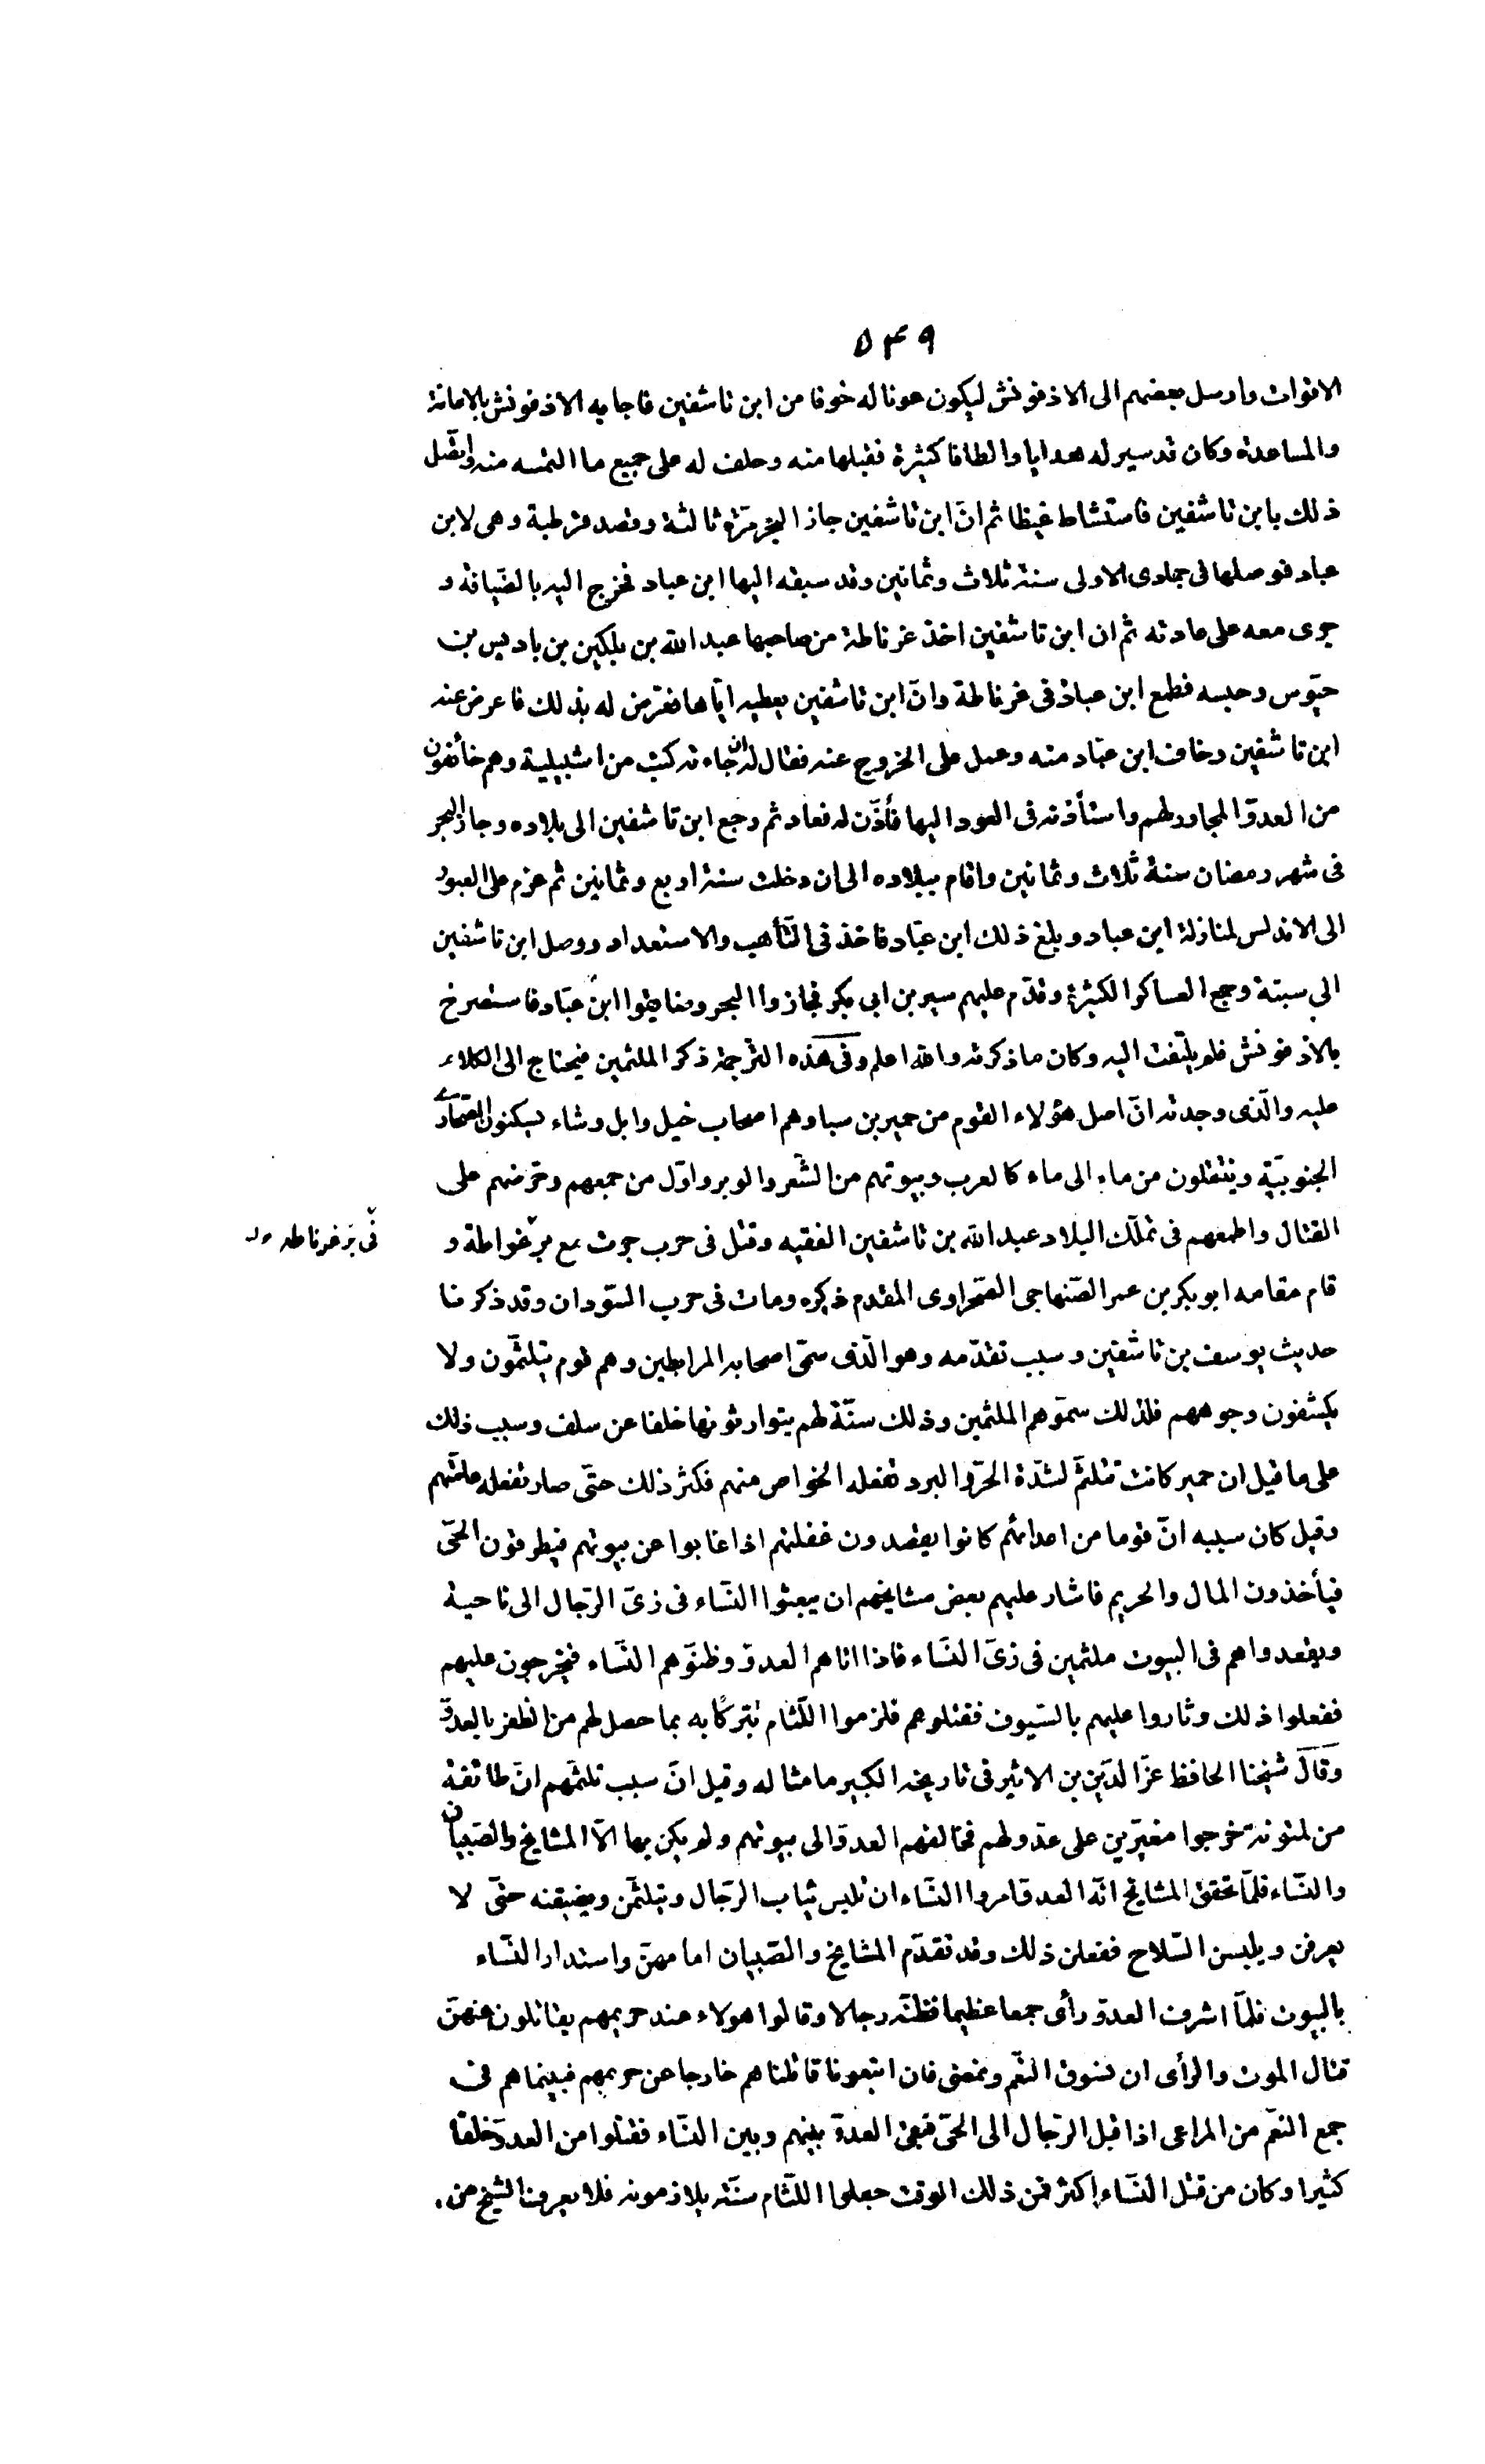 ٥٤٩
الاقوات وارسل بعضهم الى الاذفونش ليكون عونا له خوفا من ابن تاشفين فاجابه الاذفونش بالاعانة
والمساعدة وكان قد سير له هدايا والطافا كثيرة فقبلها منه وحلف له على جميع ما التمسه منه واتّصل
ذلك بابن تاشفين فاستشاط غيظا ثم انّ ابن تاشفين جاز البحر مرّة ثالثة وقصد قرطبة وهى لابن
عباد فوصلها فى جمادى الاولى سنة ثلاث وثمانين وقد سبقه اليها ابن عباد فخرج اليه بالضّيافة و
جرى معه على عادته ثم ان ابن تاشفين اخذ غرناطة من صاحبها عبد الله بن بلكين بن باديس بن
حبّوس وحبسه فطمع ابن عباد فى غرناطة وانّ ابن تاشفين يعطيه ايّاها فعرّض له بذلك فاعرض عنه
ابن تاشفين وخاف ابن عبّاد منه وعمل على الخروج عنه فقال له ان جاءته كتب من اشبيلية وهم خائفون
من العدوّ المجاور لهم واستأذنه فى العود اليها فأذن له فعاد ثم رجع ابن تاشفين الى بلاده وجاز البحر
فى شهر رمضان سنة ثلاث وثمانين واقام ببلاده الى ان دخلت سنة اربع وثمانين ثم عزم على العبور
الى الاندلس لمنازلة ابن عباد وبلغ ذلك ابن عبّاد فاخذ فى التّأهب والاستعداد ووصل ابن تاشفين
الى سبتة وجمع العساكر الكثيرة وقدّم عليهم سير بن ابى بكر فجازوا البحر وضايقوا ابن عبّاد فاستصرخ
بالاذفونش فلم يلتفت اليه وكان ما ذكرته والله اعلم وفى هذه التّرجمة ذكر الملثمين فيحتاج الى الكلام
عليه والّذى وجدته انّ اصل هؤلاء القوم من حمير بن سبا وهم اصحاب خيل وابل وشاء يسكنون الصّحارى
الجنوبيّة وينتقلون من ماء الى ماء كالعرب وبيوتهم من الشّعر والوبر واوّل من جمعهم وحرّضهم على
القتال واطمعهم فى تملّك البلاد عبد الله بن تاشفين الفقيه وقتل فى حرب جرت مع برغواطة و
قام مقامه ابو بكر بن عمر الصّنهاجى الصّحراوى المقدم ذكره ومات فى حرب السّودان وقد ذكرنا
حديث يوسف بن تاشفين وسبب تقدّمه وهو الّذى سمّى اصحابه المرابطين وهم قوم يتلثّمون ولا
يكشفون وجوههم فلذلك سمّوهم الملثمين وذلك سنّة لهم يتوارثونها خلفا عن سلف وسبب ذلك
على ما قيل ان حمير كانت تتلثّم لشدّة الحرّ والبرد تفعله الخواص منهم فكثر ذلك حتّى صار تفعله عامّتهم
وقيل كان سببه انّ قوما من اعدائهم كانوا يقصدون غفلتهم اذا غابوا عن بيوتهم فيطرقون الحىّ
فيأخذون المال والحريم فاشار عليهم بعض مشايخهم ان يبعثوا النّساء فى زىّ الرّجال الى ناحية
ويقعدوا هم فى البيوت ملثمين فى زىّ النّساء فاذا اتاهم العدوّ وظنّوهم النّساء فيخرجون عليهم
ففعلوا ذلك وثاروا عليهم بالسّيوف فقتلوهم فلزموا اللّثام تبرّكا به بما حصل لهم من الظفر بالعدوّ
وقال شيخنا الحافظ عزّ الدّين بن الاثير فى تاريخه الكبير ما مثاله وقيل انّ سبب تلثّمهم انّ طائفة
من لمتونة خرجوا مغيرين على عدوّ لهم فخالفهم العدوّ الى بيوتهم ولم يكن بها الّا المشايخ والصّبيان
والنّساء فلمّا تحقق المشايخ انّه العدوّ امروا النّساء ان تلبس ثياب الرّجال ويتلثّمن ويضيقنه حتّى لا
يعرفن ويلبسن السّلاح ففعلن ذلك وقد تقدّم المشايخ والصّبيان امامهنّ واستدار النّساء
بالبيوت فلمّا اشرف العدوّ رأى جمعا عظيما فظنّه رجالا وقالوا هولاء عند حريمهم يقاتلون عنهنّ
قتال الموت والرأى ان نسوق النّعم ونمضى فان اتبعونا قاتلناهم خارجا عن حريمهم فبينما هم فى
جمع النّعم من المراعى اذ اقبل الرّجال الى الحىّ فبقى العدوّ بينهم وبين النّساء فقتلوا من العدوّ خلقا
كثيرا وكان من قتل النّساء اكثر فمن ذلك الوقت جعلوا اللّثام سنّة يلازمونه فلا يعرف الشيخ من